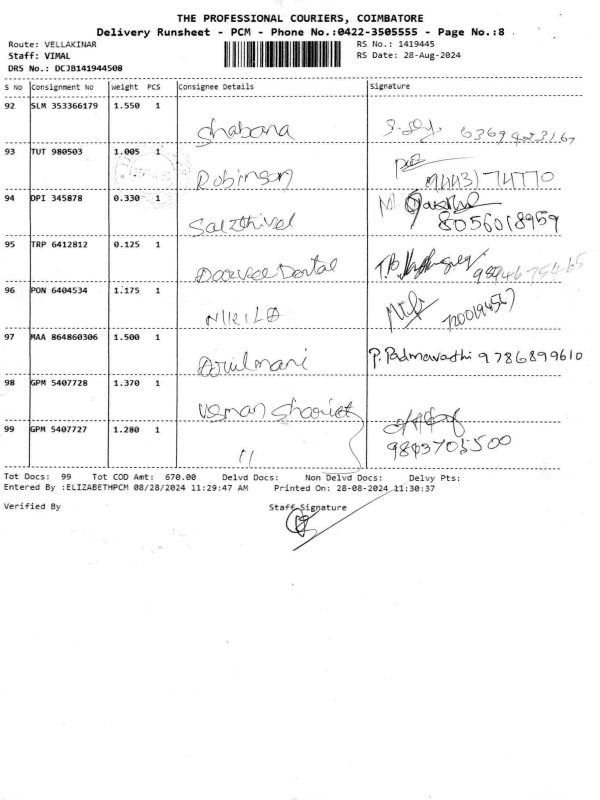 THE PROFESSIONAL COURIERS, COIMBATORE
Delivery Runsheet - PCM - Phone No.:0422-3505555 - Page No.:8
Route: VELLAKINAR RS No.: 1419445
Staff: VIMAL RS Date: 28-Aug-2024
DRS No.: DCJB141944508
S No Consignment No Weight PCS Consignee Details Signature
92 SLM 353366179 1.550 1 Shabana
93 TUT 980503 1.005 1 Robinson
94 DPI 345878 0.330 1 8056018959
95 TRP 6412812 0.125 1 Dental
96 PON 6404534 1.175 1
97 MAA 864860306 1.500 1 Arulmani P. Padmavathi 9786899610
98 GPM 5407728 1.370 1 Usman
99 GPM 5407727 1.280 1 11 9843705500
Tot Docs: 99 Tot COD Amt: 670.00 Delvd Docs: Non Delvd Docs: Delvy Pts:
Entered By :ELIZABETHPCM 08/28/2024 11:29:47 AM Printed On: 28-08-2024 11:30:37
Verified By Staff Signature